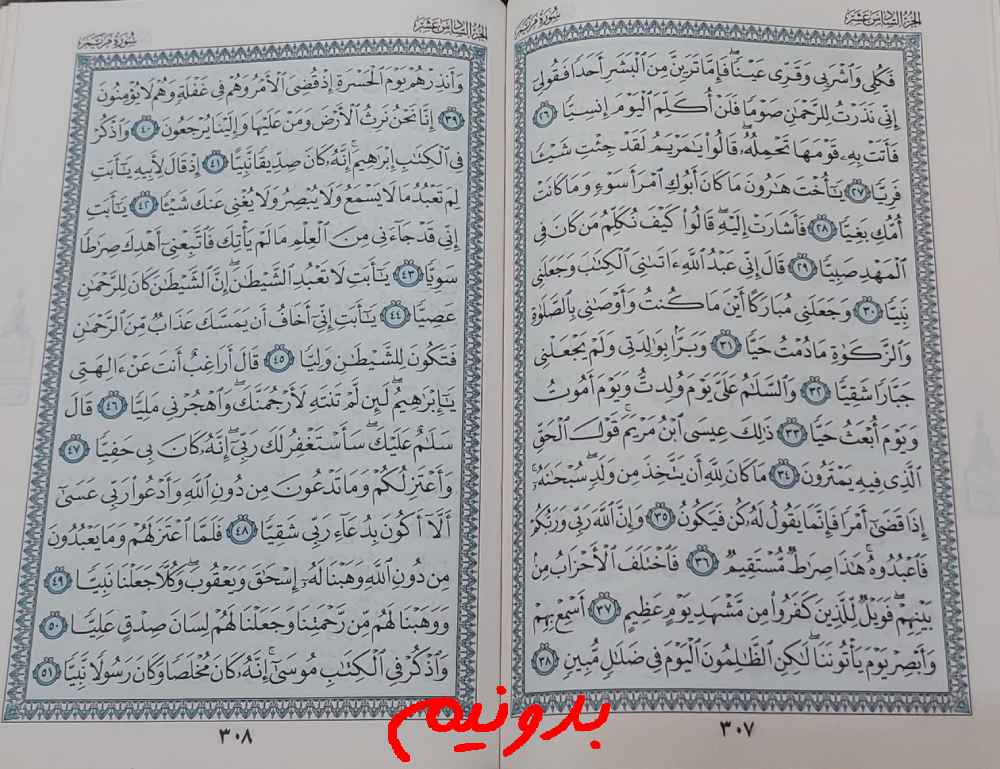 الجزء السادس عشر
سورة مريم
فَكُلِى وَٱشْرَبِى وَقَرِّى عَيْنًا ۖ فَإِمَّا تَرَيِنَّ مِنَ ٱلْبَشَرِ أَحَدًا فَقُولِىٓ
إِنِّى نَذَرْتُ لِلرَّحْمَٰنِ صَوْمًا فَلَنْ أُكَلِّمَ ٱلْيَوْمَ إِنسِيًّا ﴿٢٦﴾
فَأَتَتْ بِهِۦ قَوْمَهَا تَحْمِلُهُۥ ۖ قَالُوا۟ يَٰمَرْيَمُ لَقَدْ جِئْتِ شَيْـًٔا
فَرِيًّا ﴿٢٧﴾ يَٰٓأُخْتَ هَٰرُونَ مَا كَانَ أَبُوكِ ٱمْرَأَ سَوْءٍ وَمَا كَانَتْ
أُمُّكِ بَغِيًّا ﴿٢٨﴾ فَأَشَارَتْ إِلَيْهِ ۖ قَالُوا۟ كَيْفَ نُكَلِّمُ مَن كَانَ فِى
ٱلْمَهْدِ صَبِيًّا ﴿٢٩﴾ قَالَ إِنِّى عَبْدُ ٱللَّهِ ءَاتَىٰنِىَ ٱلْكِتَٰبَ وَجَعَلَنِى
نَبِيًّا ﴿٣٠﴾ وَجَعَلَنِى مُبَارَكًا أَيْنَ مَا كُنتُ وَأَوْصَٰنِى بِٱلصَّلَوٰةِ
وَٱلزَّكَوٰةِ مَا دُمْتُ حَيًّا ﴿٣١﴾ وَبَرًّۢا بِوَٰلِدَتِى وَلَمْ يَجْعَلْنِى
جَبَّارًا شَقِيًّا ﴿٣٢﴾ وَٱلسَّلَٰمُ عَلَىَّ يَوْمَ وُلِدتُّ وَيَوْمَ أَمُوتُ
وَيَوْمَ أُبْعَثُ حَيًّا ﴿٣٣﴾ ذَٰلِكَ عِيسَى ٱبْنُ مَرْيَمَ ۚ قَوْلَ ٱلْحَقِّ
ٱلَّذِى فِيهِ يَمْتَرُونَ ﴿٣٤﴾ مَا كَانَ لِلَّهِ أَن يَتَّخِذَ مِن وَلَدٍ ۖ سُبْحَٰنَهُۥٓ ۚ
إِذَا قَضَىٰٓ أَمْرًا فَإِنَّمَا يَقُولُ لَهُۥ كُن فَيَكُونُ ﴿٣٥﴾ وَإِنَّ ٱللَّهَ رَبِّى وَرَبُّكُمْ
فَٱعْبُدُوهُ ۚ هَٰذَا صِرَٰطٌ مُّسْتَقِيمٌ ﴿٣٦﴾ فَٱخْتَلَفَ ٱلْأَحْزَابُ مِنۢ
بَيْنِهِمْ ۖ فَوَيْلٌ لِّلَّذِينَ كَفَرُوا۟ مِن مَّشْهَدِ يَوْمٍ عَظِيمٍ ﴿٣٧﴾ أَسْمِعْ بِهِمْ
وَأَبْصِرْ يَوْمَ يَأْتُونَنَا ۖ لَٰكِنِ ٱلظَّٰلِمُونَ ٱلْيَوْمَ فِى ضَلَٰلٍ مُّبِينٍ ﴿٣٨﴾
٣٠٧
الجزء السادس عشر
سورة مريم
وَأَنذِرْهُمْ يَوْمَ ٱلْحَسْرَةِ إِذْ قُضِىَ ٱلْأَمْرُ وَهُمْ فِى غَفْلَةٍ وَهُمْ لَا يُؤْمِنُونَ
﴿٣٩﴾ إِنَّا نَحْنُ نَرِثُ ٱلْأَرْضَ وَمَنْ عَلَيْهَا وَإِلَيْنَا يُرْجَعُونَ ﴿٤٠﴾ وَٱذْكُرْ
فِى ٱلْكِتَٰبِ إِبْرَٰهِيمَ ۚ إِنَّهُۥ كَانَ صِدِّيقًا نَّبِيًّا ﴿٤١﴾ إِذْ قَالَ لِأَبِيهِ يَٰٓأَبَتِ
لِمَ تَعْبُدُ مَا لَا يَسْمَعُ وَلَا يُبْصِرُ وَلَا يُغْنِى عَنكَ شَيْـًٔا ﴿٤٢﴾ يَٰٓأَبَتِ
إِنِّى قَدْ جَآءَنِى مِنَ ٱلْعِلْمِ مَا لَمْ يَأْتِكَ فَٱتَّبِعْنِىٓ أَهْدِكَ صِرَٰطًا
سَوِيًّا ﴿٤٣﴾ يَٰٓأَبَتِ لَا تَعْبُدِ ٱلشَّيْطَٰنَ ۖ إِنَّ ٱلشَّيْطَٰنَ كَانَ لِلرَّحْمَٰنِ
عَصِيًّا ﴿٤٤﴾ يَٰٓأَبَتِ إِنِّىٓ أَخَافُ أَن يَمَسَّكَ عَذَابٌ مِّنَ ٱلرَّحْمَٰنِ
فَتَكُونَ لِلشَّيْطَٰنِ وَلِيًّا ﴿٤٥﴾ قَالَ أَرَاغِبٌ أَنتَ عَنْ ءَالِهَتِى
يَٰٓإِبْرَٰهِيمُ ۖ لَئِن لَّمْ تَنتَهِ لَأَرْجُمَنَّكَ ۖ وَٱهْجُرْنِى مَلِيًّا ﴿٤٦﴾ قَالَ
سَلَٰمٌ عَلَيْكَ ۖ سَأَسْتَغْفِرُ لَكَ رَبِّىٓ ۖ إِنَّهُۥ كَانَ بِى حَفِيًّا ﴿٤٧﴾
وَأَعْتَزِلُكُمْ وَمَا تَدْعُونَ مِن دُونِ ٱللَّهِ وَأَدْعُوا۟ رَبِّى عَسَىٰٓ
أَلَّآ أَكُونَ بِدُعَآءِ رَبِّى شَقِيًّا ﴿٤٨﴾ فَلَمَّا ٱعْتَزَلَهُمْ وَمَا يَعْبُدُونَ
مِن دُونِ ٱللَّهِ وَهَبْنَا لَهُۥٓ إِسْحَٰقَ وَيَعْقُوبَ ۖ وَكُلًّا جَعَلْنَا نَبِيًّا ﴿٤٩﴾
وَوَهَبْنَا لَهُم مِّن رَّحْمَتِنَا وَجَعَلْنَا لَهُمْ لِسَانَ صِدْقٍ عَلِيًّا ﴿٥٠﴾
وَٱذْكُرْ فِى ٱلْكِتَٰبِ مُوسَىٰٓ ۚ إِنَّهُۥ كَانَ مُخْلَصًا وَكَانَ رَسُولًا نَّبِيًّا ﴿٥١﴾
٣٠٨
بدونیم